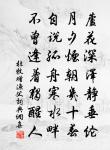 蘆花深澤靜垂綸
月夕煙朝幾十春
自說孤舟寒水畔
不曾逢著獨醒人
杜牧贈漁父詩